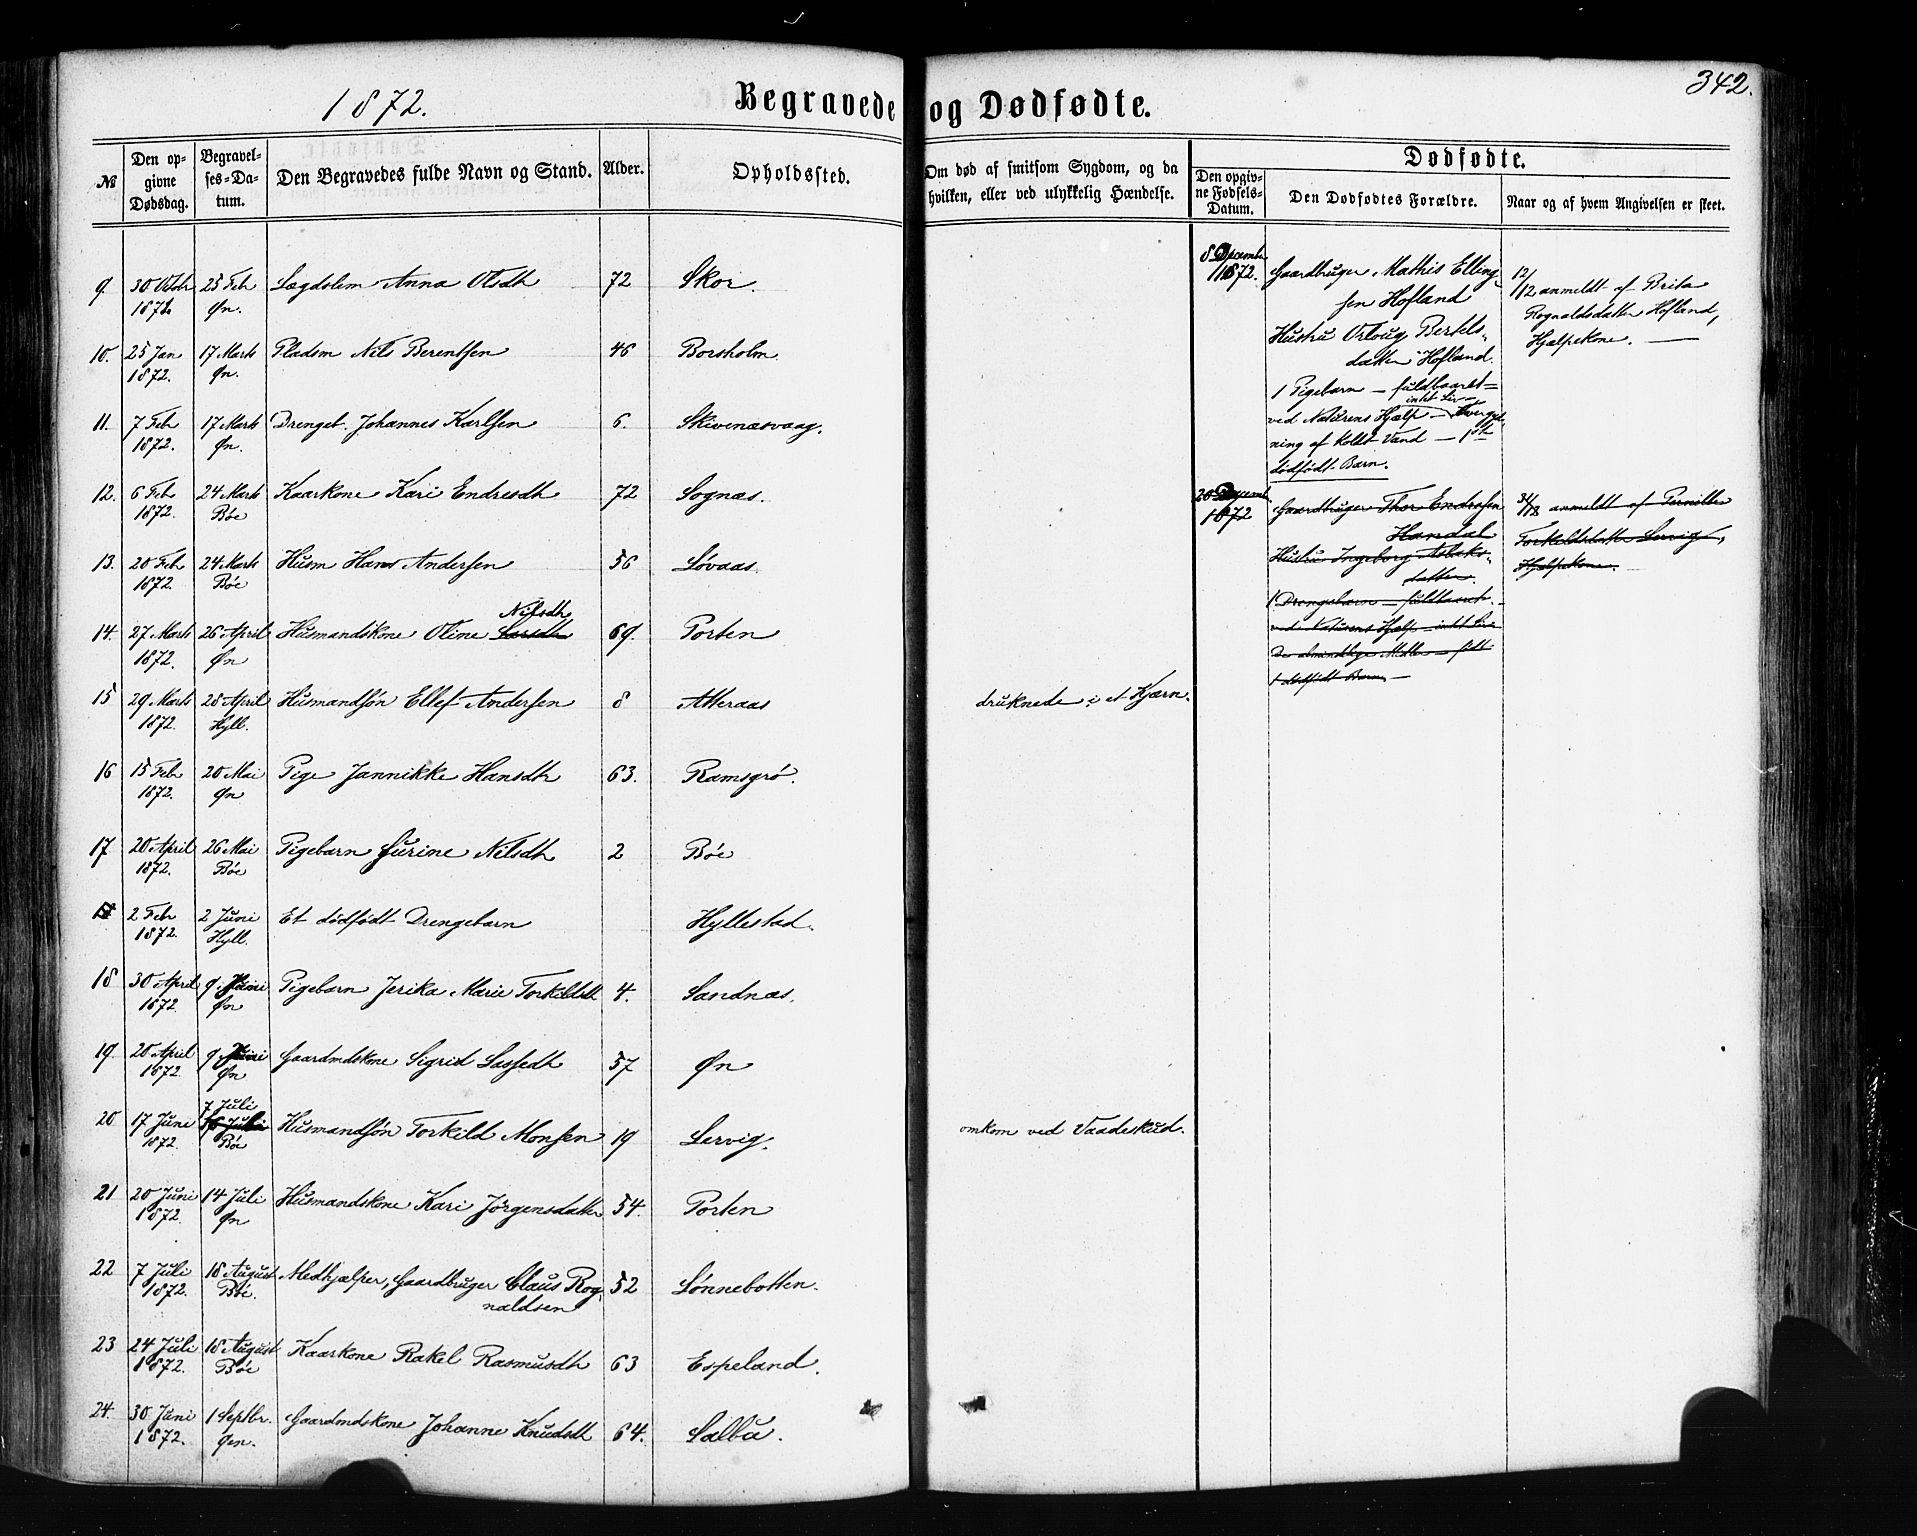 342.
1872.
Begravede og Dødfødte.
№
Den opgivne Dødsdag.
Begravelses-Datum.
Den Begravedes fulde Navn og Stand.
Alder.
Opholdssted.
Om død af smitsom Sygdom, og da hvilken, eller ved ulykkelig Hændelse.
Dødfødte.
Den opgivne Fødsels-Datum.
Den Dødfødtes Forældre.
Naar og af hvem Angivelsen er skeet.
9. 30 Octbr 1872 25 Feb Øn. Lægdslem Anna Olsdtr 72 Skor.
10. 25 Jan 1872. 17 Marts Øn. Pladsm Nils Berentsen 46 Borsholm
11. 7 Feb 1872. 17 Marts Øn. Drengeb. Johannes Karlsen 6. Skivenæsvaag.
12. 6 Feb 1872. 24 Marts Bøe Kaarkone Kari Endresdtr 72 Sognæs.
13. 20 Feb 1872. 24 Marts Bøe Husm Hans Andersen 56 Løvaas.
14. 27 Marts 1872. 26 April Øn Husmandskone Oline Larsdtr Nilsdtr 69. Porten
15 29 Marts 1872. 28 April Hyll. Husmandsøn Ellef Andersen 8 Atteraas druknede i et Kjærn.
16 15 Feb 1872. 20 Mai Øn Pige Jannikke Hansdtr 63. Ramsgrø.
17 20 April 1872. 26 Mai Bøe Pigebarn Gurine Nilsdtr 2 Bøe
2 Feb 1872. 2 Juni Hyll. Et dødfødt Drengebarn Hyllestad.
18 30 April 1872 9 Juni Øn Pigebarn Jerika Marie Torkildsdtr 4. Sandnæs.
19. 20 April 1872 9 Juni Øn Gaardmdskone Sigrid Lassedtr 57 Øn
20 17 Juni 1872. 7 Juli Bøe Husmandsøn Torkild Monsen 19 Lervig. omkom ved Vaadeskud.
21 20 Juni 1872. 14 Juli Øn Husmandskone Kari Jørgensdatter 54. Porten
22 7 Juli 1872. 18 August Bøe. Medhjælper, Gaardbruger Claus Rognaldsen 52 Lønnebotten.
23 24 Juli 1872. 18 August Bøe Kaarkone Rakel Rasmusdtr 63 Espeland.
24. 30 Juni 1872. 1 Septbr. Øen. Gaardmdskone Johanne Knudsdtr 64. Salbu.
8 Decembr 1872.
Gaardbruger Mathis Elling
sen Hofland
Hustru Orloug Bertels-
datter Hofland.
1 Pigebarn – fuldbaaret –
intet Liv –
ved Naturens Hjælp –
ning af koldt Vand – 1ste
dødfødt Barn.
12/12 anmeldt af Brita
Rognaldsdatter Hofland,
Hjælpekone. —
20 Decemb. 1872
Gaardbruger Thor Endresen
Handal
Hustru Ingeborg
datter.
1 Drengebarn – fuldbaaret –
ved Naturens Hjælp – intet Liv
De almindelige Midler – født
1 dødfødt Barn. —
anmeldt af Pernille
Torkildsdatter Lervig,
Hjælpekone.